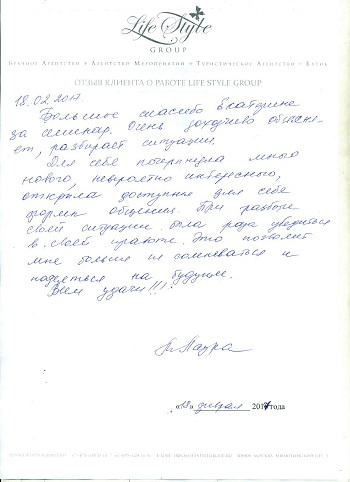 Life Style
GROUP
Брачное Агентство • Агентство Мероприятий • Туристическое Агентство •
ОТЗЫВ КЛИЕНТА О РАБОТЕ LIFE STYLE GROUP
18.02.2017.
Большое спасибо Екатерине
за семинар. Очень доходчиво объясня-
ет, разбирает ситуации.
Для себя почерпнула много
нового, невероятно интересного,
открыла доступные для себя
формы общения. При разборе
своей ситуации была рада убедиться
в своей правоте. Это позволит
мне больше не сомневаться и
надеяться на будущее.
Всем удачи!!!
«18» февраля 2017 года